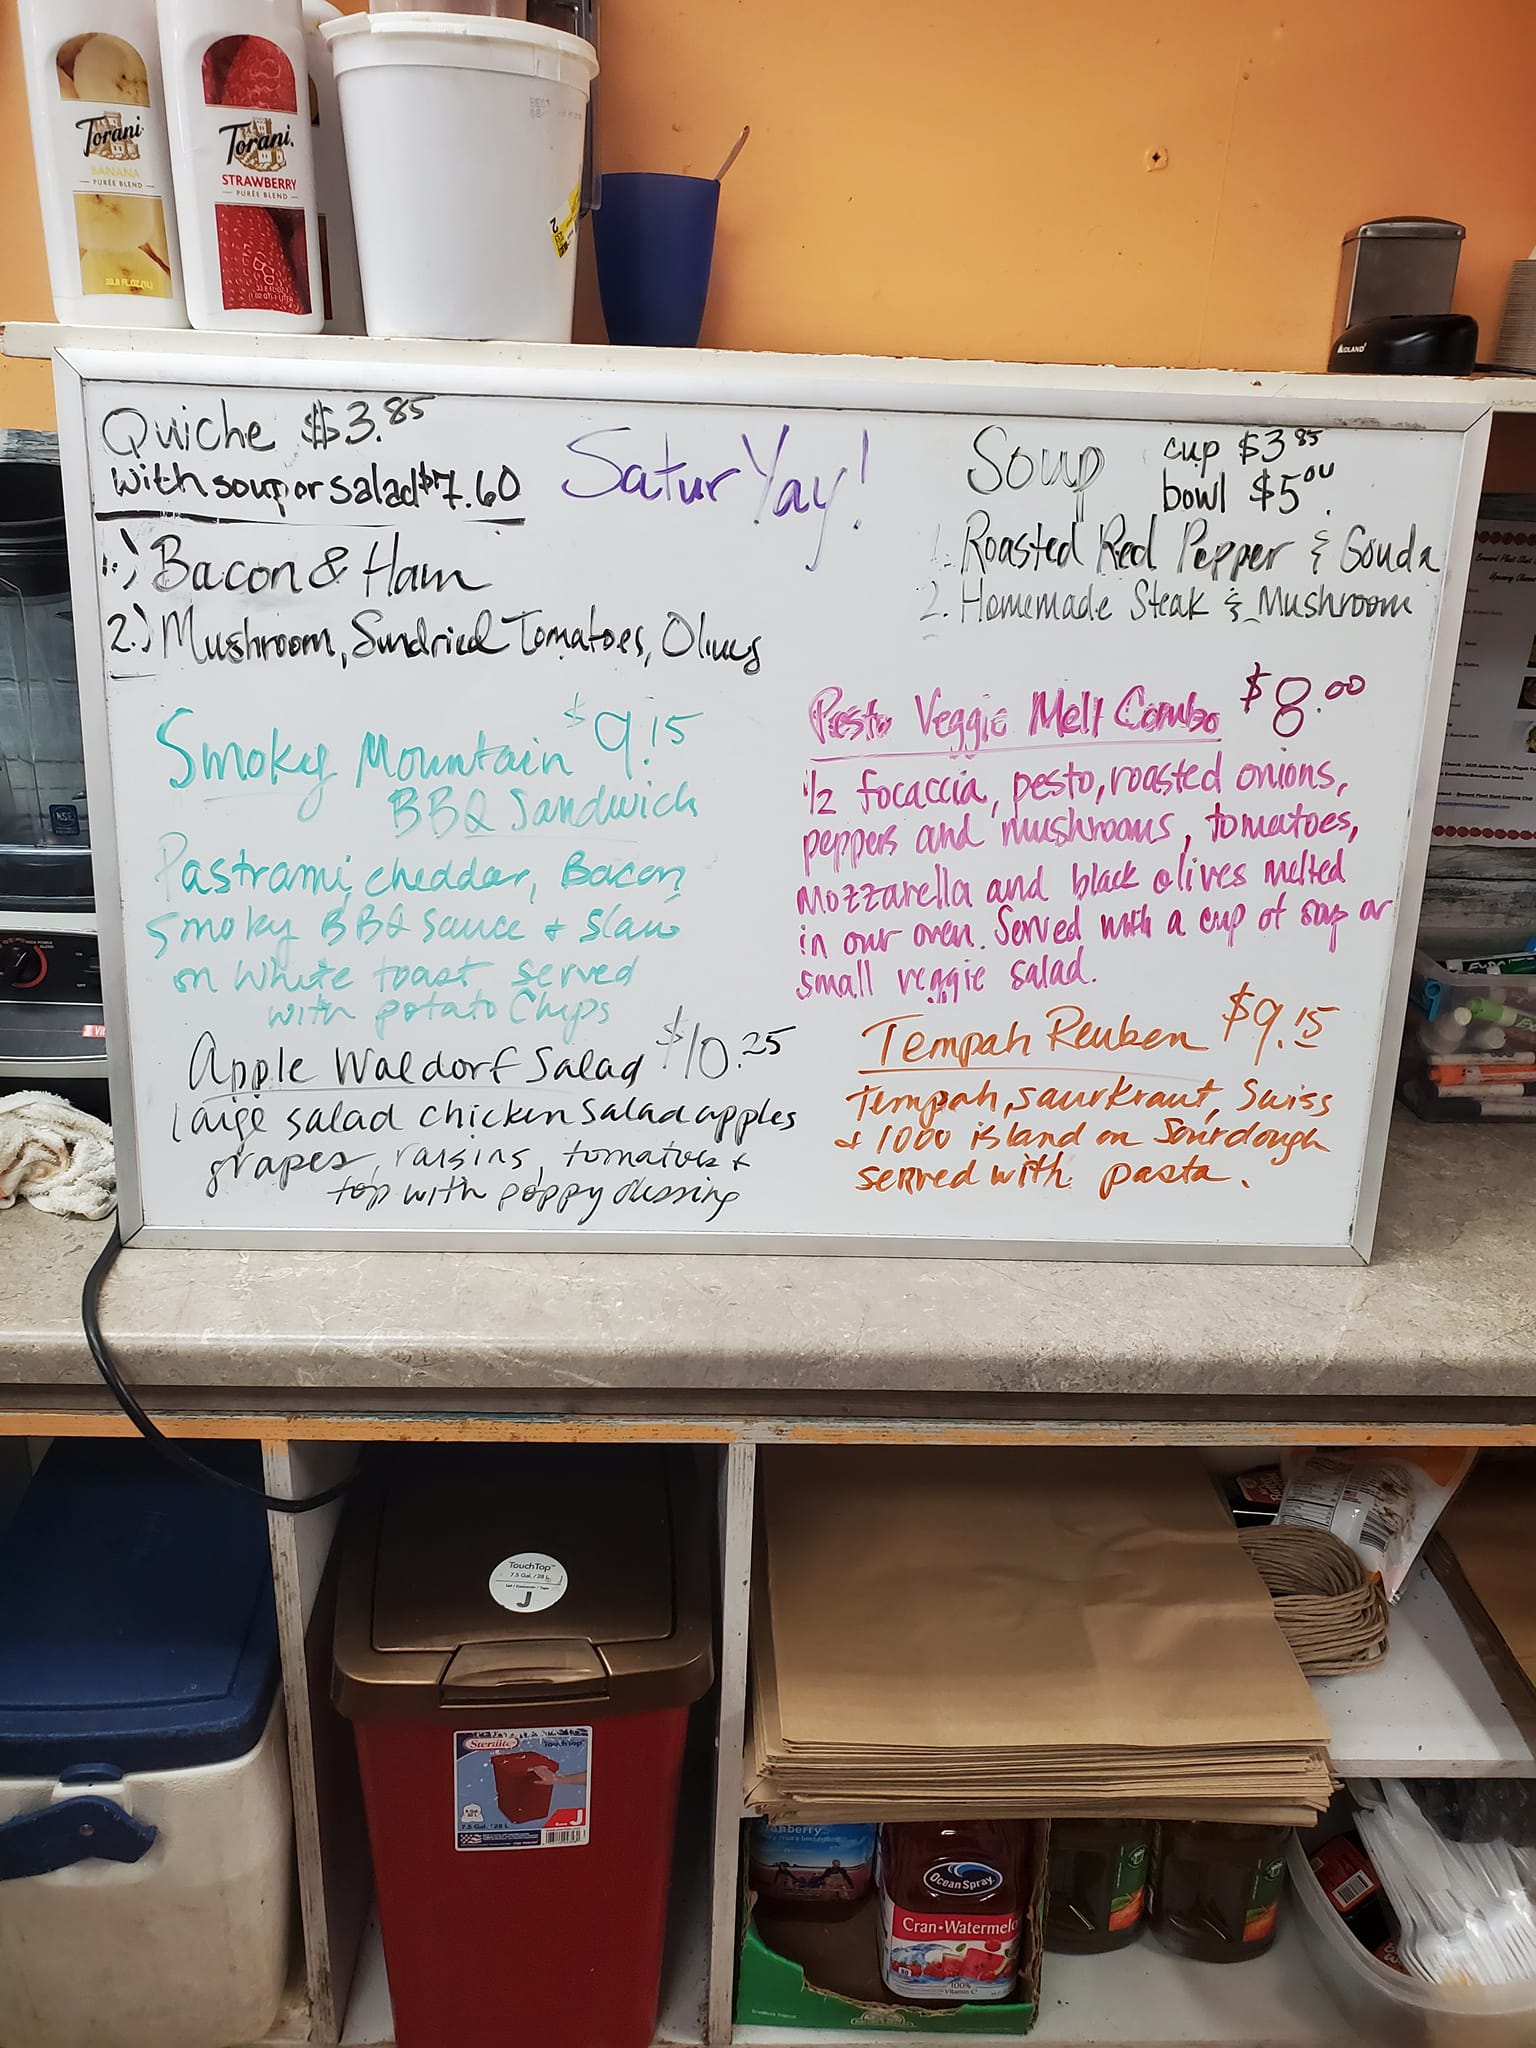 Torani
BANANA
PURÉE BLEND
Torani
STRAWBERRY
PURÉE BLEND
MIDLAND
Quiche $3.85
with soup or salad $7.60
1.) Bacon & Ham
2.) Mushroom, Sundried Tomatoes, Olives
Satur Yay!
Soup cup $3.85
bowl $5.00
1. Roasted Red Pepper & Gouda
2. Homemade Steak & Mushroom
Smoky Mountain $9.15
BBQ Sandwich
Pastrami, cheddar, Bacon,
Smoky BBQ sauce & slaw
on White toast served
with potato Chips
Pesto Veggie Melt Combo $8.00
1/2 focaccia, pesto, roasted onions,
peppers and mushrooms, tomatoes,
mozzarella and black olives melted
in our oven. Served with a cup of soup or
small veggie salad.
Apple Waldorf Salad $10.25
large salad chicken salad apples
grapes, raisins, tomatoes &
top with poppy dressing
Tempah Reuben $9.15
Tempah, saurkraut, Swiss
& 1000 island on Sourdough
served with pasta.
NSF
TouchTop™
7.5 Gal. / 28 L
J
Sterilite
TouchTop
7.5 Gal. / 28 L
J
Ocean Spray
Cran•Watermelo
100%
Vitamin C